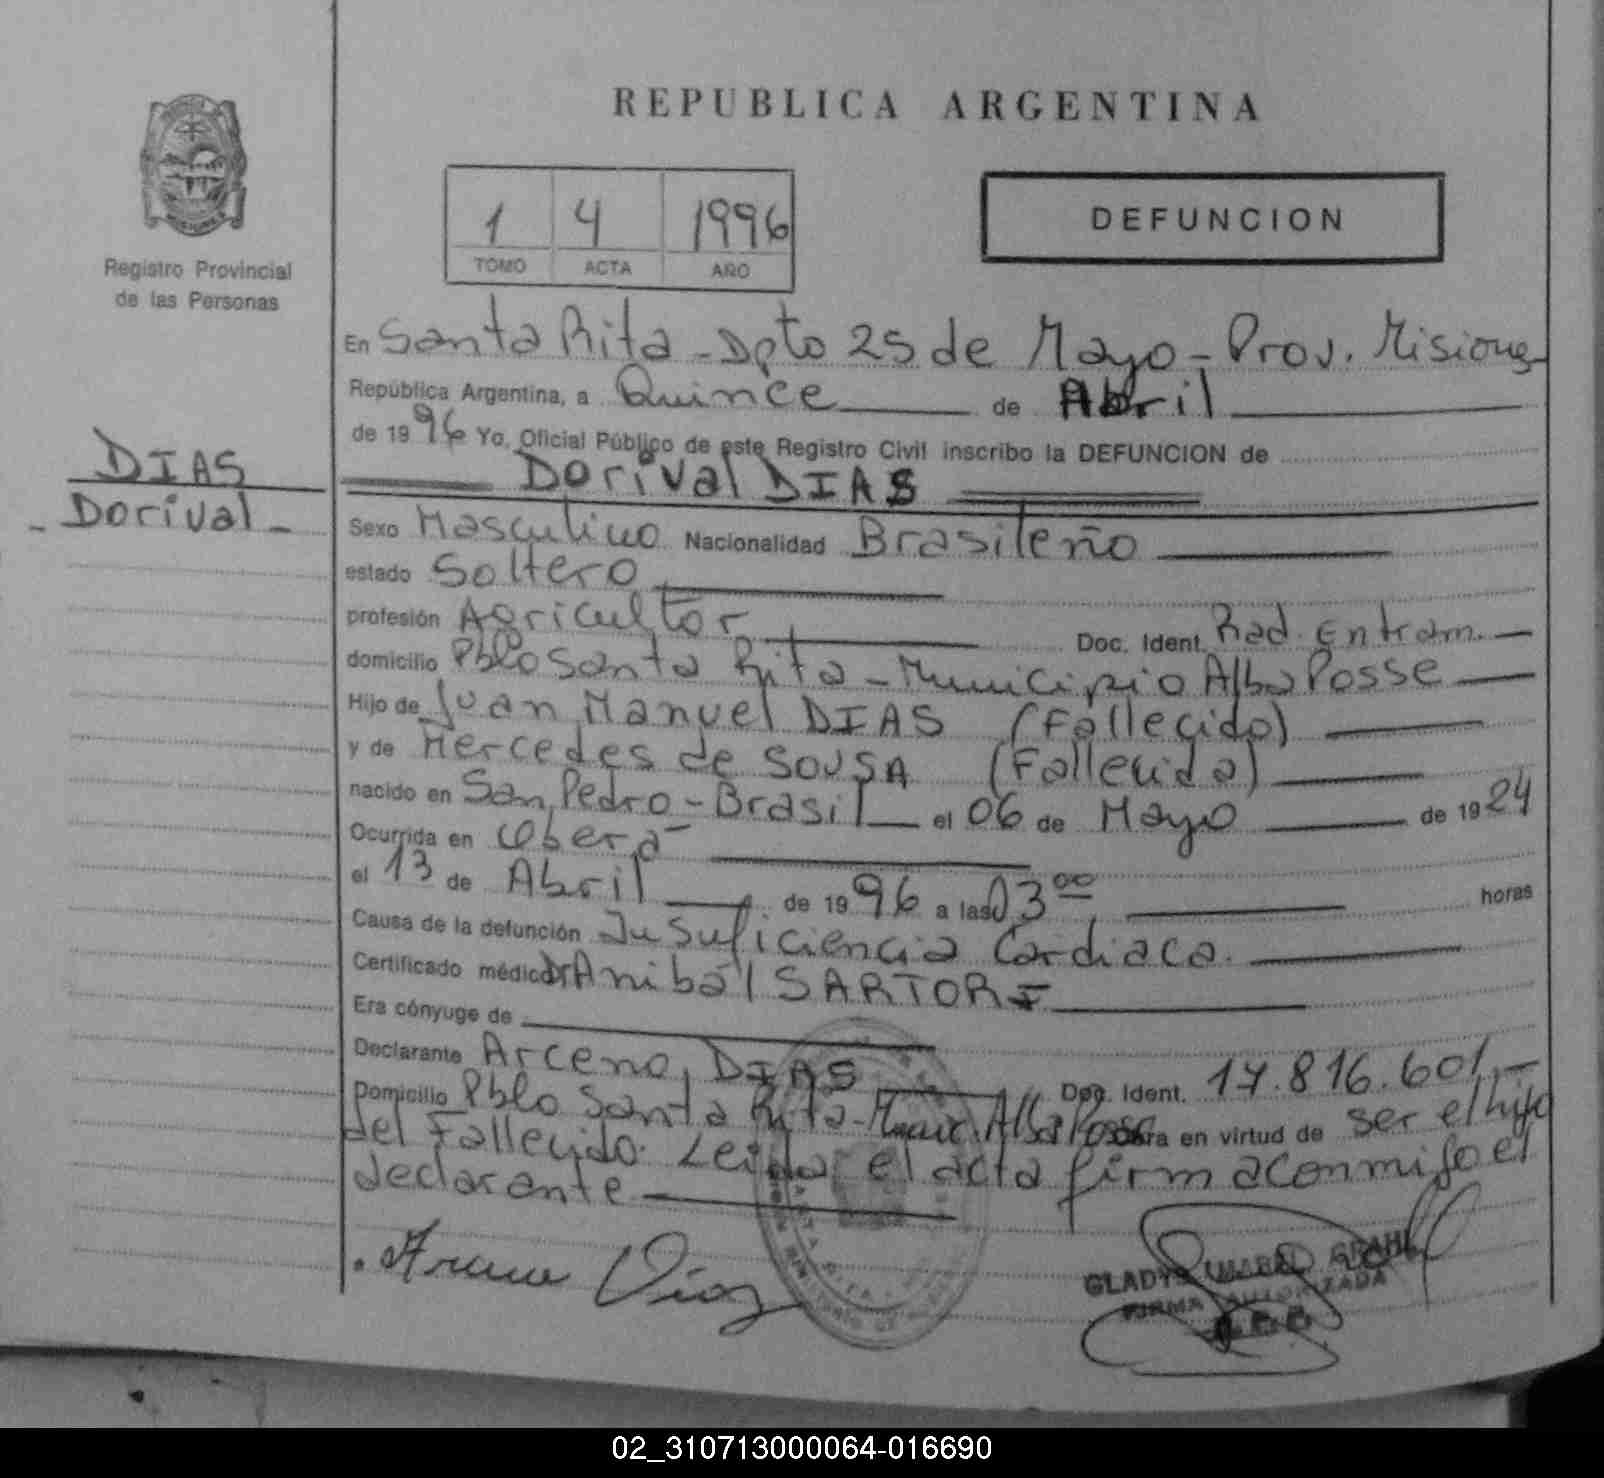 REPUBLICA ARGENTINA
1 4 1996
TOMO ACTA AÑO
DEFUNCION
Registro Provincial
de las Personas
DIAS
- Dorival -
En Santa Rita - Dpto 25 de Mayo - Prov. Misiones
República Argentina, a Quince de Abril
de 1996 Yo, Oficial Público de este Registro Civil inscribo la DEFUNCION de
Dorival DIAS
Sexo Masculino Nacionalidad Brasileño
estado Soltero
profesión Agricultor Doc. Ident. Rad. Entram.
domicilio Pblo Santa Rita - Municipio Alba Posse
Hijo de Juan Manuel DIAS (Fallecido)
y de Mercedes de SOUSA (Fallecida)
nacido en San Pedro - Brasil el 06 de Mayo de 1924
Ocurrida en Oberá
el 13 de Abril de 1996 a las 03 00 horas
Causa de la defunción Insuficiencia Cardiaca.
Certificado médico Dr Anibal SARTORI
Era cónyuge de
Declarante Arceno DIAS Doc. Ident. 17.816.601.-
Domicilio Pblo Santa Rita - Munic. Alba Posse Obra en virtud de ser el hijo
del Fallecido. Leida el acta firma conmigo el
declarante
Dias
GLADYS GRAHL
FIRMA AUTORIZADA
02_310713000064-016690